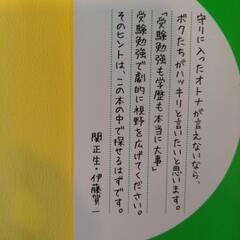 守りに入ったオトナが言えないなら、
ボクたちがハッキリと言いたいと思います。
「受験勉強も学歴も本当に大事」
受験勉強で劇的に視野を広げてください。
そのヒントは、この本の中で探せるはずです。
関正生・伊藤賀一